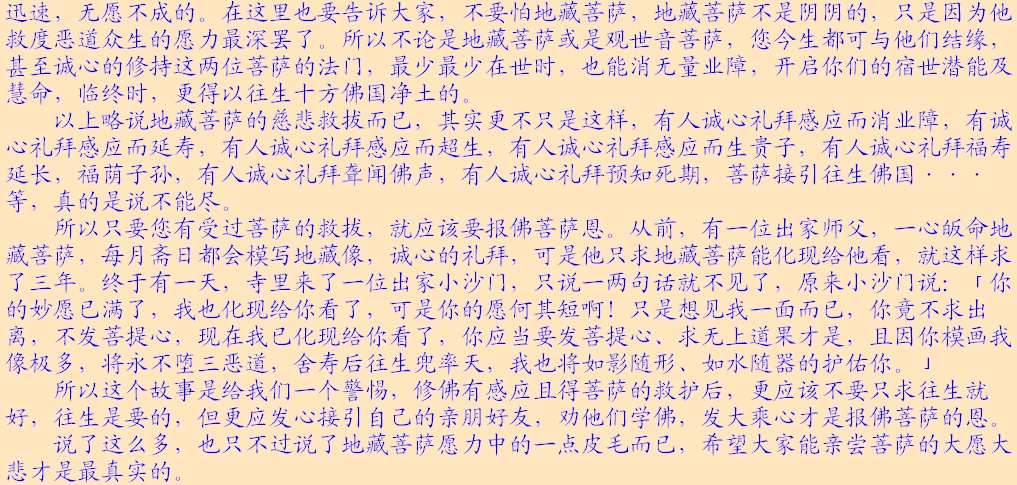 迅速，无愿不成的。在这里也要告诉大家，不要怕地藏菩萨，地藏菩萨不是阴阴的，只是因为他
救度恶道众生的愿力最深罢了。所以不论是地藏菩萨或是观世音菩萨，您今生都可与他们结缘，
甚至诚心的修持这两位菩萨的法门，最少最少在世时，也能消无量业障，开启你们的宿世潜能及
慧命，临终时，更得以往生十方佛国净土的。
以上略说地藏菩萨的慈悲救拔而已，其实更不只是这样，有人诚心礼拜感应而消业障，有诚
心礼拜感应而延寿，有人诚心礼拜感应而超生，有人诚心礼拜感应而生贵子，有人诚心礼拜福寿
延长，福荫子孙，有人诚心礼拜聋闻佛声，有人诚心礼拜预知死期，菩萨接引往生佛国···
等，真的是说不能尽。
所以只要您有受过菩萨的救拔，就应该要报佛菩萨恩。从前，有一位出家师父，一心皈命地
藏菩萨，每月斋日都会模写地藏像，诚心的礼拜，可是他只求地藏菩萨能化现给他看，就这样求
了三年。终于有一天，寺里来了一位出家小沙门，只说一两句话就不见了，原来小沙门说：「你
的妙愿已满了，我也化现给你看了，可是你的愿何其短啊！只是想见我一面而已，你竟不求出
离，不发菩提心，现在我已化现给你看了，你应当要发菩提心、求无上道果才是，且因你模画我
像极多，将永不堕三恶道，舍寿后往生兜率天，我也将如影随形、如水随器的护佑你。」
所以这个故事是给我们一个警惕，修佛有感应且得菩萨的救护后，更应该不要只求往生就
好，往生是要的，但更应发心接引自己的亲朋好友，劝他们学佛，发大乘心才是报佛菩萨的恩。
说了这么多，也只不过说了地藏菩萨愿力中的一点皮毛而已，希望大家能亲尝菩萨的大愿大
悲才是最真实的。